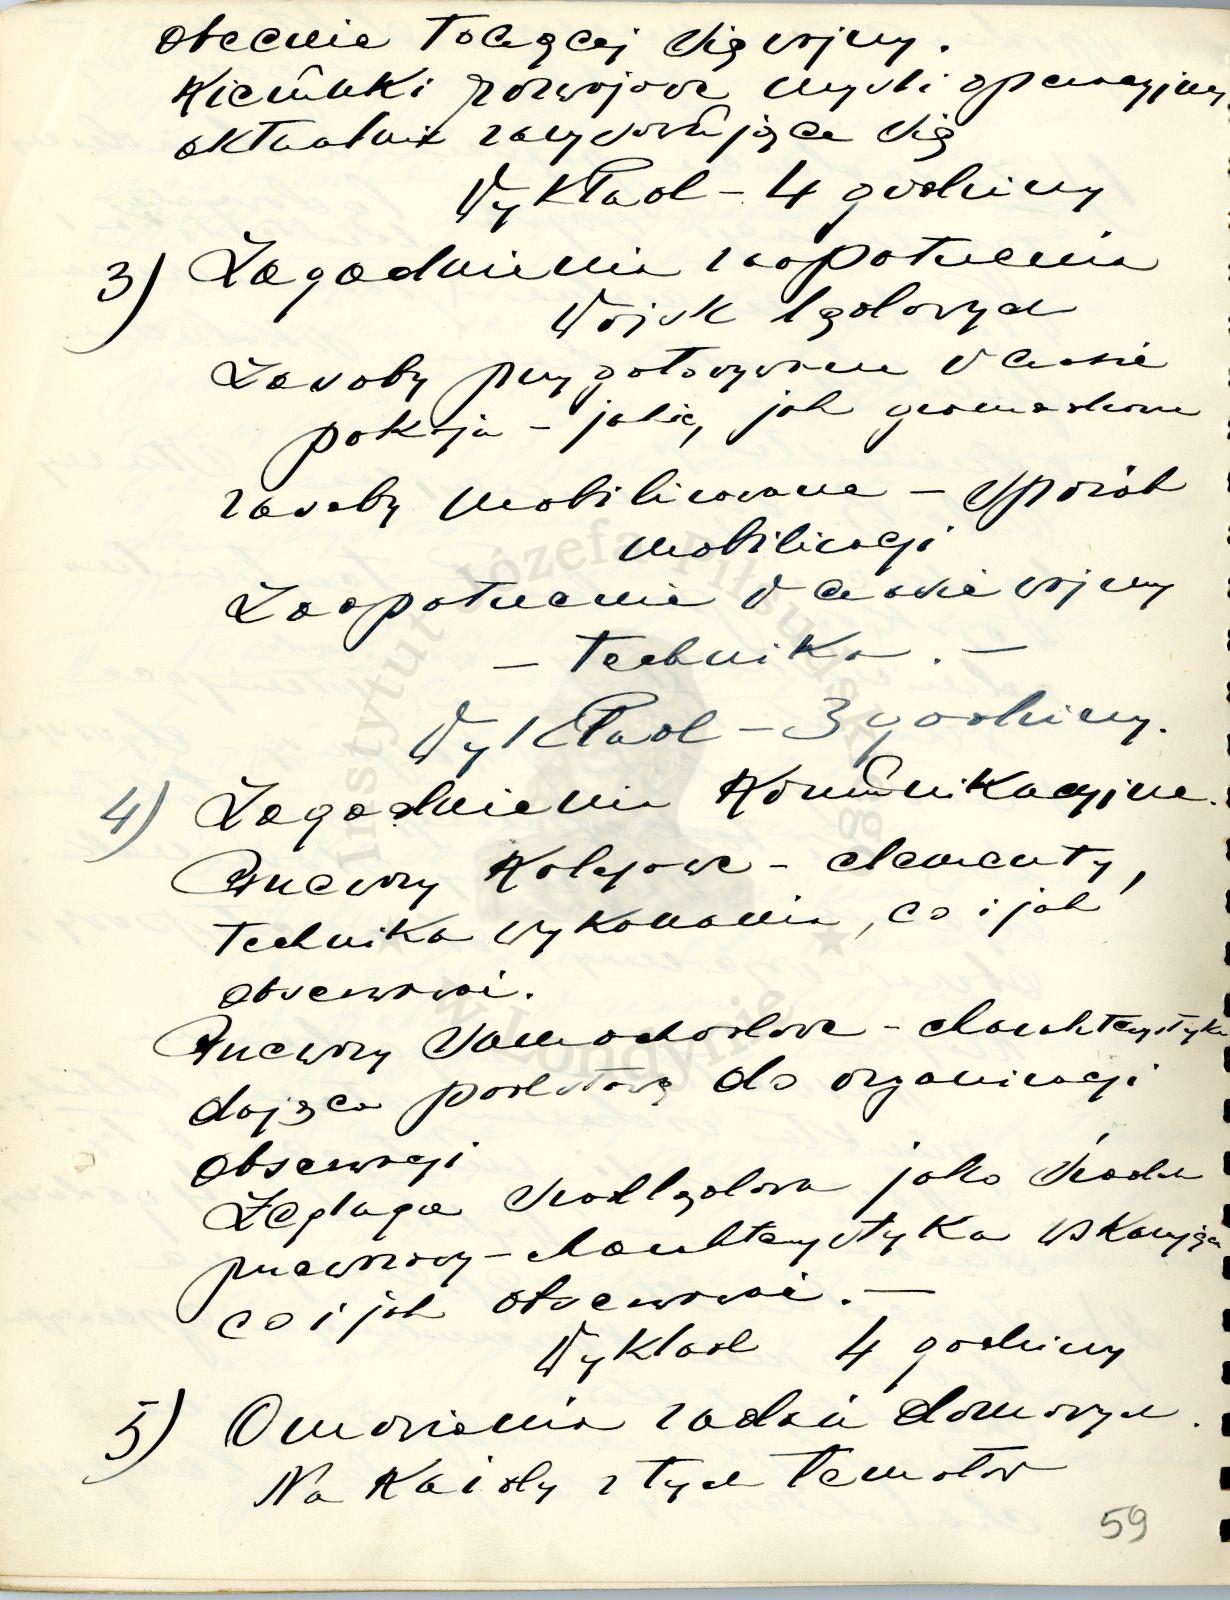 obecnie toczącej się wojny.
Kierunki rozwojowe myśli operacyjnej
aktualnie zarysowujące się
Wykład - 4 godziny
3) Zagadnienia zaopatrzenia
Wojsk lądowych
Zasoby przygotowywane w czasie
pokoju - jakie, jak gromadzone
zasoby mobilizowane - sposób
mobilizacji
Zaopatrzenie w czasie wojny
- technika. -
Wykład - 3 godziny.
4) Zagadnienia Komunikacyjne.
Przewozy Kolejowe - elementy,
technika wykonania, co i jak
obserwować.
Przewozy samochodowe - charakterystyka
dająca podstawę do organizacji
obserwacji
Żegluga śródlądowa jako środek
przewozowy - charakterystyka wskazująca
co i jak obserwować. -
Wykład 4 godziny
5) Omówienia zadań domowych.
Na każdy z tych tematów
59
Instytut Józefa Piłsudskiego
w Londynie